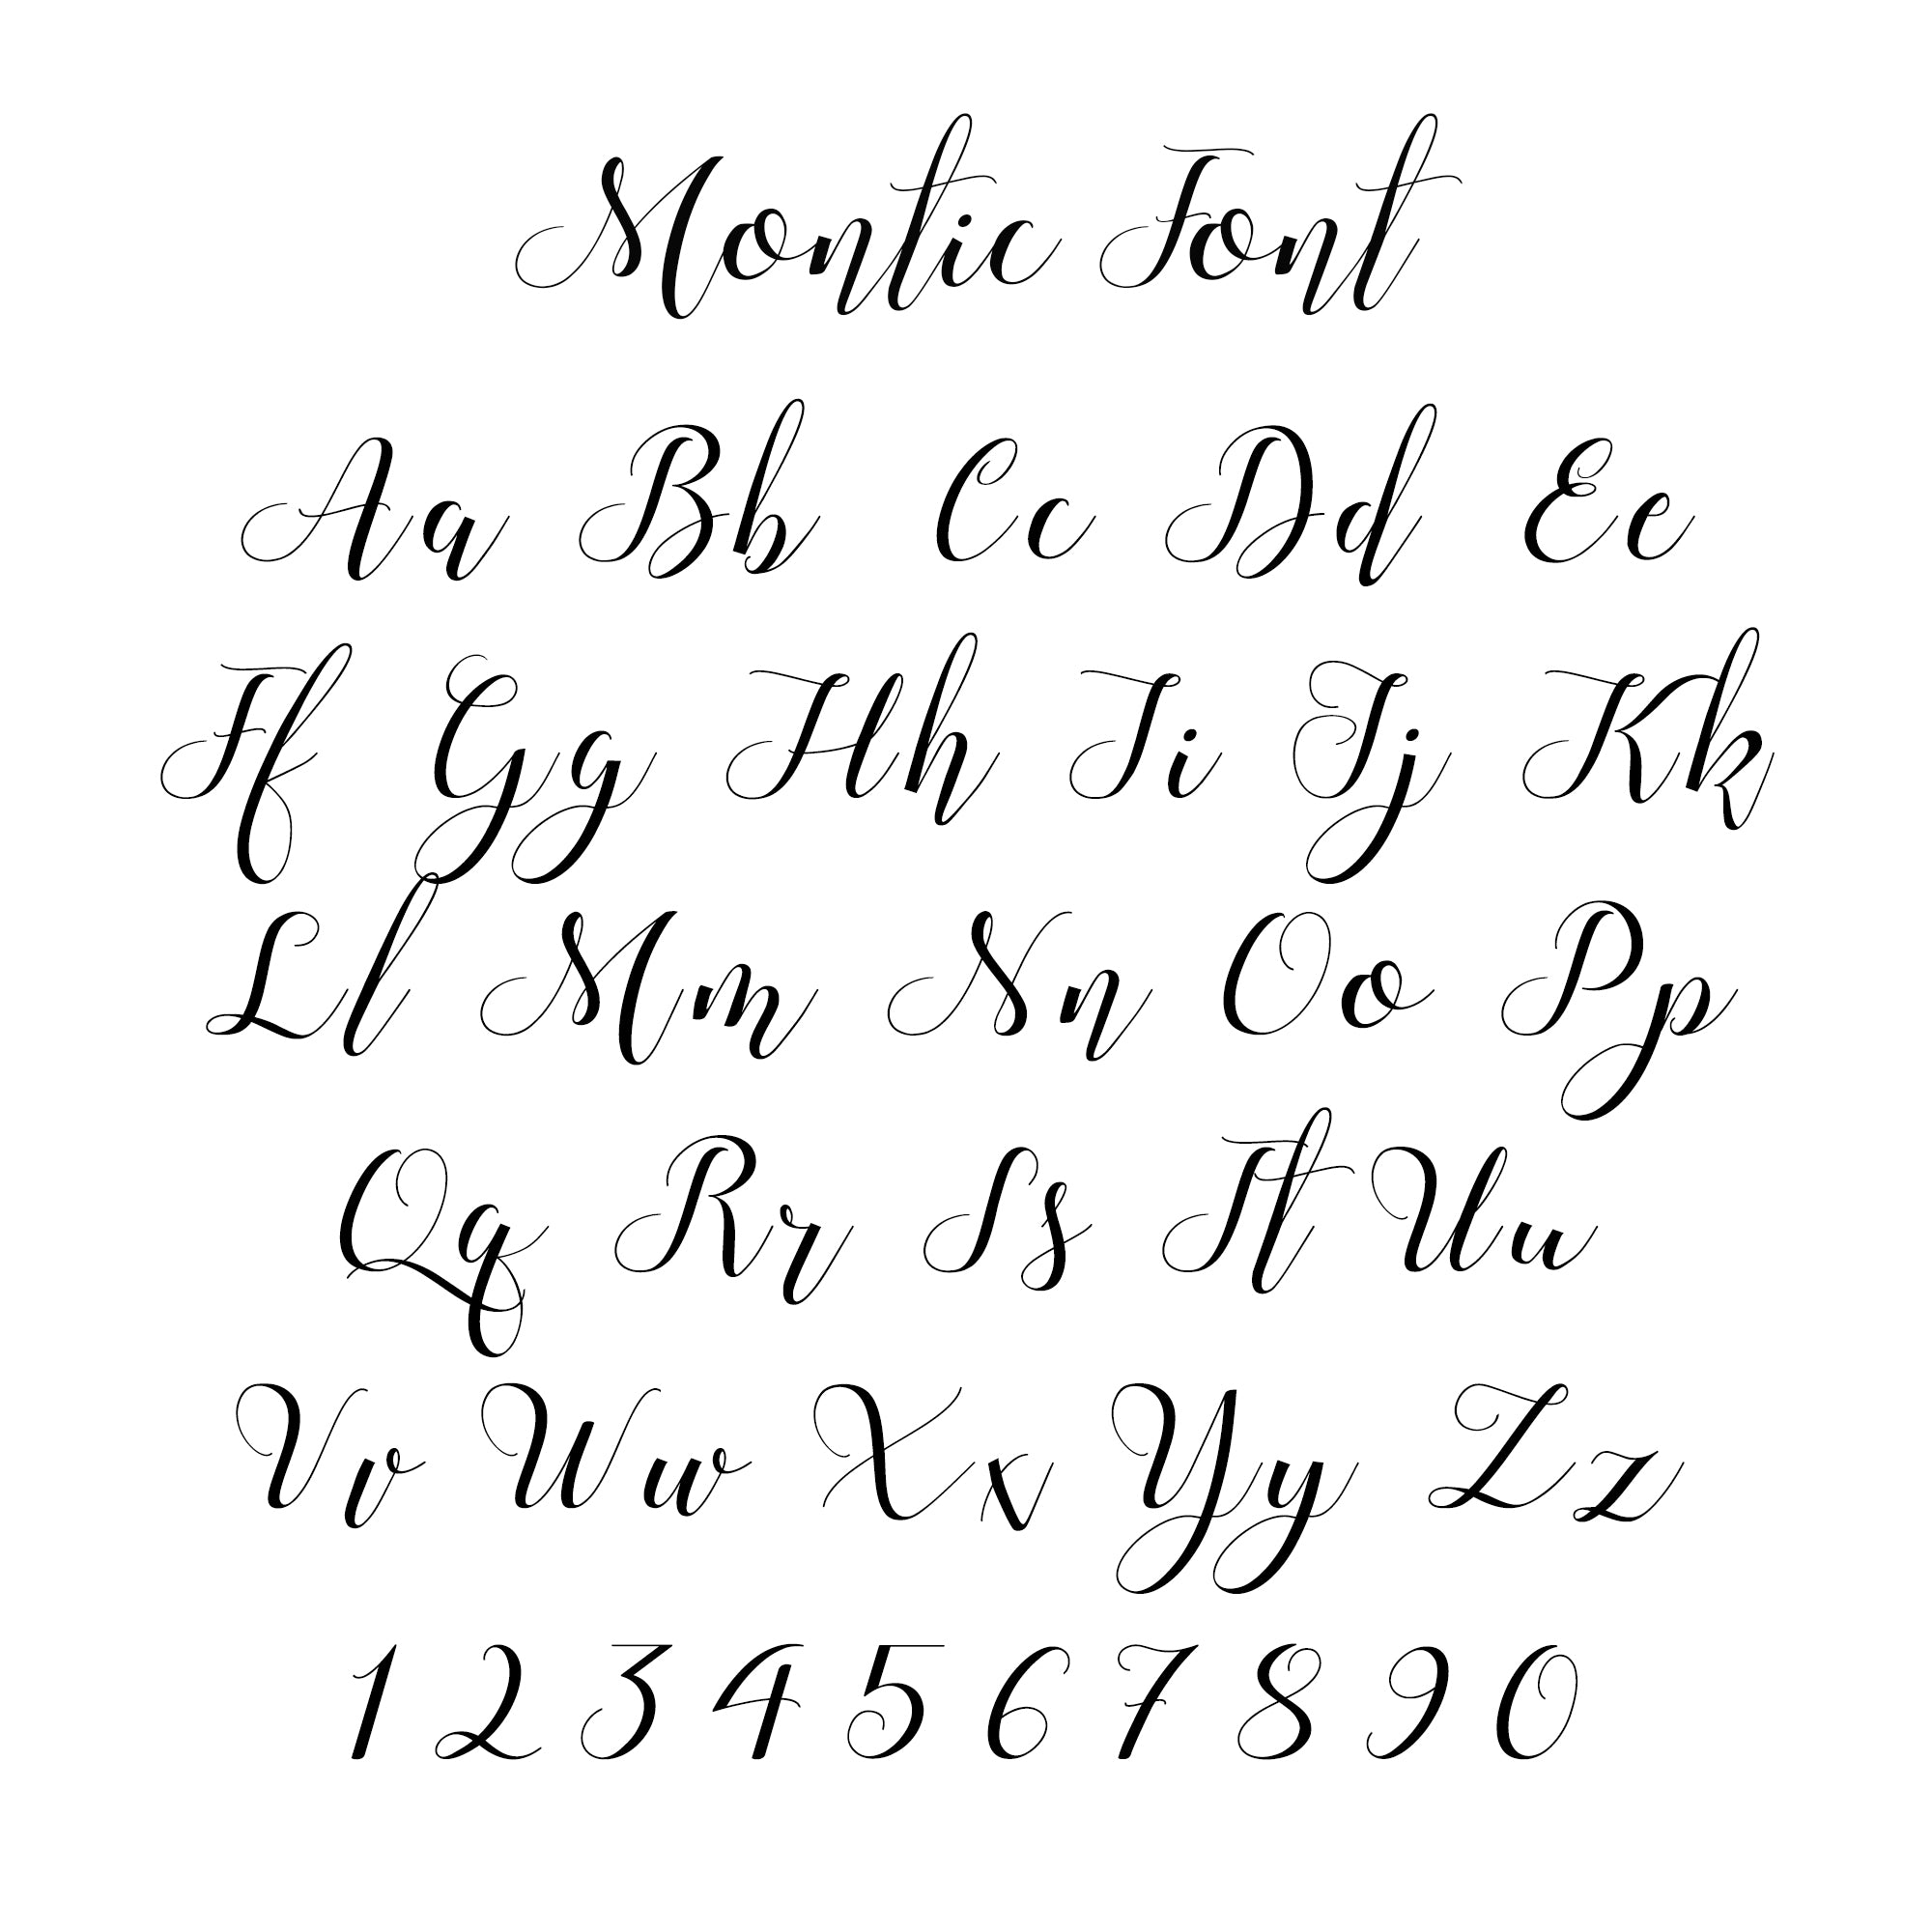 Montic Font
Aa Bb Cc Dd Ee
Ff Gg Hh Ii Jj Kk
Ll Mm Nn Oo Pp
Qq Rr Ss Tt Uu
Vv Ww Xx Yy Zz
1 2 3 4 5 6 7 8 9 0